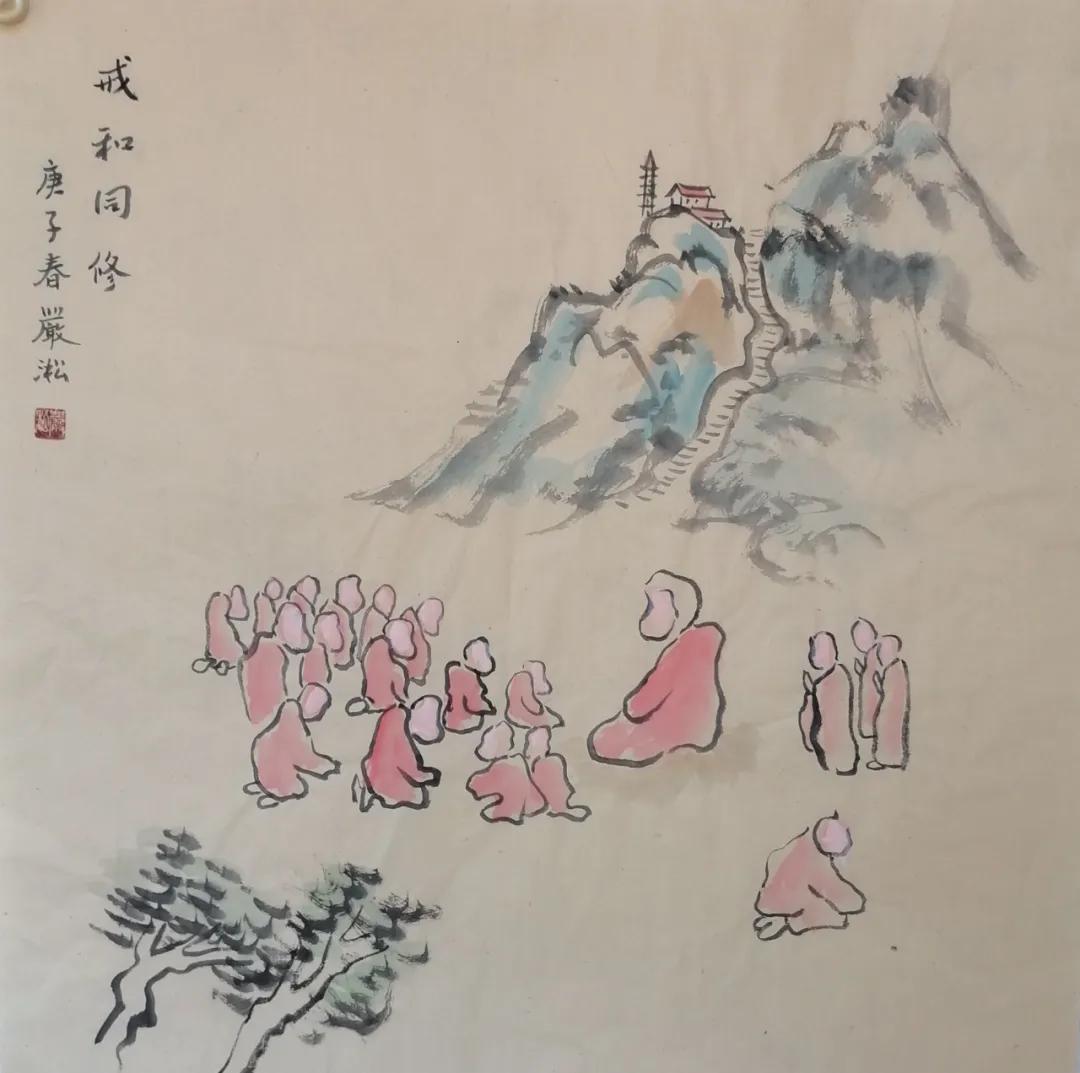 戒和同修
庚子春嚴淞